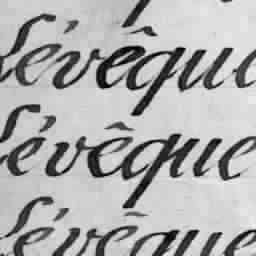 Lévêque
Lévêque
Lévêque